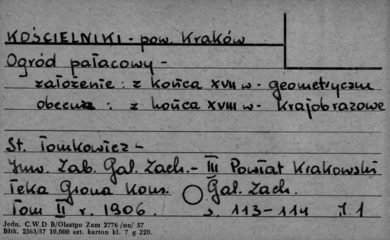 KOŚCIELNIKI - pow. Kraków
Ogród pałacowy -
założenie : z końca XVII w - geometryczne
obecne : z końca XVIII w - krajobrazowe
St. Tomkowicz -
Inw. Zab. Gal. Zach. - III Powiat Krakowski
Teka Grona Kons. Gal. Zach.
Tom II r. 1906. s. 113-114 J. 1
Jedn. C.W.D B/Olsztyn Zam 2776/oz/ 57
Błtk. 2563/57 10,000 szt. karton kl. 7 g 220.